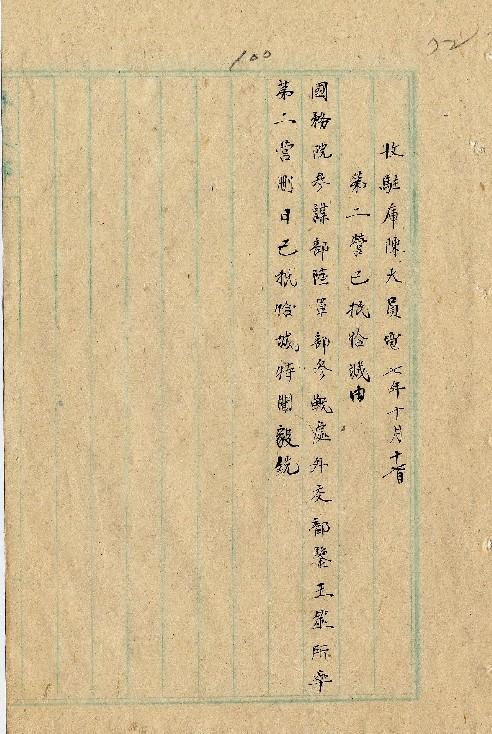 100
收駐庫陳大員電七年十月十八日
第二營已抵恰城由
國務院參謀部陸軍部參戰處外交部鑒王營所率
第二營刪日已抵恰城特聞毅銑